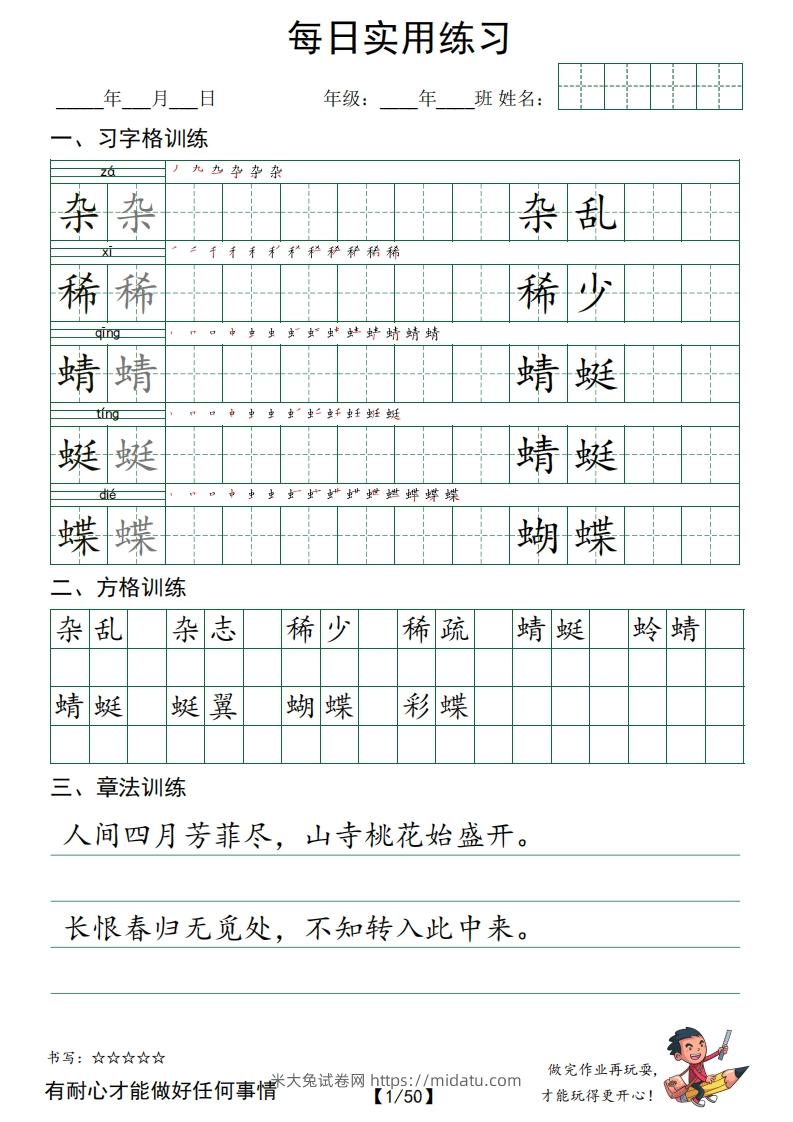 每日实用练习
_____年___月___日 年级：____年____班 姓名：
一、习字格训练
zá
杂 杂 杂 乱
xī
稀 稀 稀 少
qīng
蜻 蜻 蜻 蜓
tíng
蜓 蜓 蜻 蜓
dié
蝶 蝶 蝴 蝶
二、方格训练
杂乱 杂志 稀少 稀疏 蜻蜓 蛉蜻
蜻蜓 蜓翼 蝴蝶 彩蝶
三、章法训练
人间四月芳菲尽，山寺桃花始盛开。
长恨春归无觅处，不知转入此中来。
书写：☆☆☆☆☆
做完作业再玩耍，
才能玩得更开心！
有耐心才能做好任何事情
米大兔试卷网 https://midatu.com
【1/50】